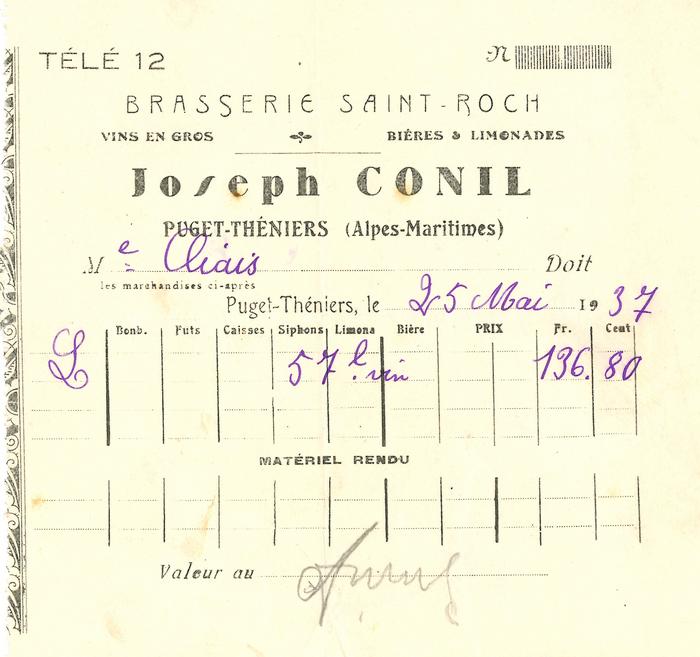 TÉLÉ 12 N
BRASSERIE SAINT-ROCH
VINS EN GROS BIÈRES & LIMONADES
Joseph CONIL
PUGET-THÉNIERS (Alpes-Maritimes)
Me Cliais Doit
les marchandises ci-après
Puget-Théniers, le 25 Mai 1937
Bonb. Futs Caisses Siphons Limona Bière PRIX Fr. Cent
57 l. vin 136. 80
MATÉRIEL RENDU
Valeur au